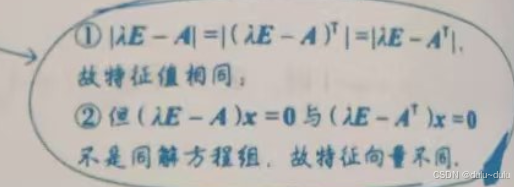 ① |λE - A| = |(λE - A)ᵀ| = |λE - Aᵀ|,
故特征值相同；
② 但 (λE - A)x = 0 与 (λE - Aᵀ)x = 0
不是同解方程组，故特征向量不同.
CSDN @dniu~dulu